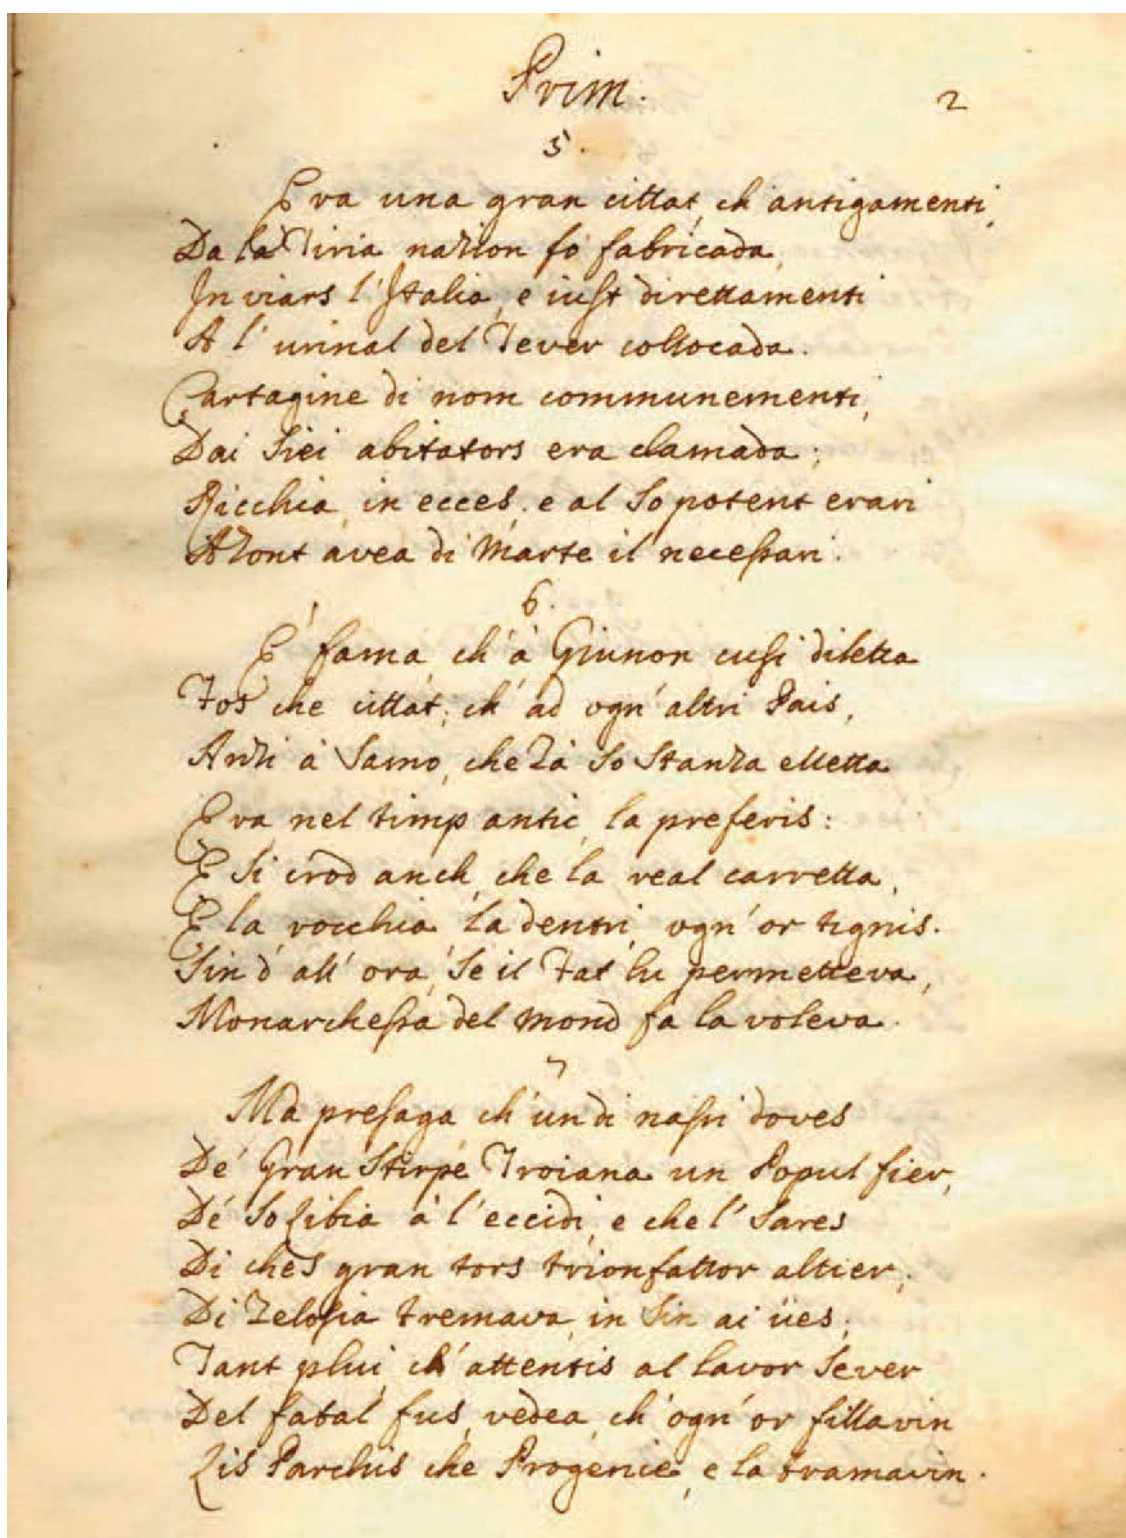 Prim.
2
5.
Era una gran cittat, ch' antigamenti,
Da la Tiria nazion fò fabricada,
In viars l'Italia, e iust direttamenti
A l'urinal del Tever collocada.
Cartagine di nom communementi,
Dai siei abitators era clamada;
Ricchia in ecces, e al so potent erari
Azont avea di Marte il necessari.
6.
E' fama, ch' à Giunon cusi diletta
Fos che cittat, ch' ad ogn' altri Pais,
Anzi à Samo, che zà so stanza elletta
Era nel timp antic, la preferis:
E si crod anch, che la real carretta,
E la rocchia là dentri, ogn' or tignis.
Sin d' all' ora, se il Fat lu permetteva,
Monarchessa del mond fa la voleva.
7
Mà presaga ch' un di nassi doves
De' Gran Stirpe Troiana un Popul fier,
De' so Libia à l'eccidi, e che l' sares
Di ches gran tors trionfattor altier;
Di zelosia tremava in sin ai ües;
Tant plui, ch' attentis al lavor sever
Del fatal fus, vedea, ch' ogn' or fillavin
Lis Parchis che Progenie, e la tramavin.